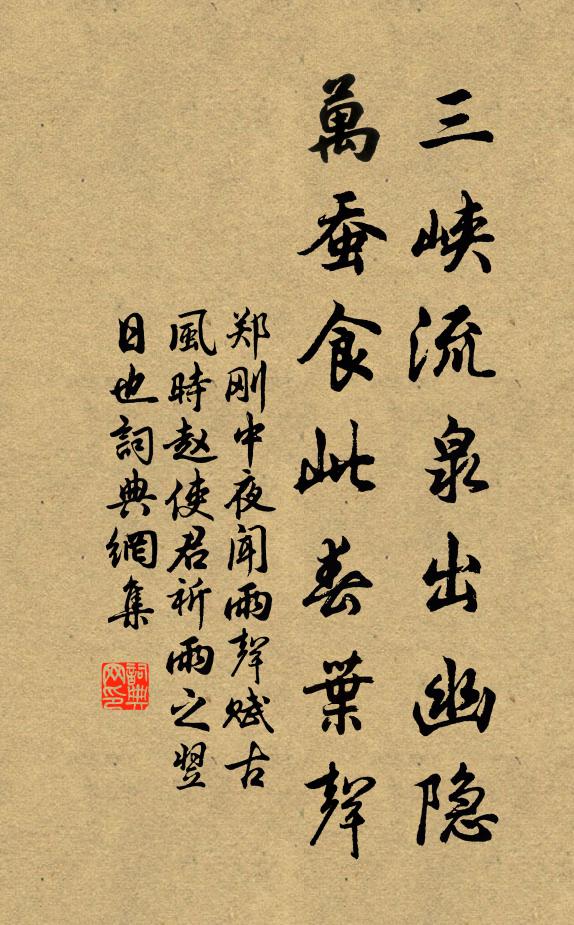 三峡流泉出幽隐
萬蚕食此春葉聲
郑刚中夜闻雨聲赋古
風時赵使君祈雨之翌
日也詞典網集
詞典
网印